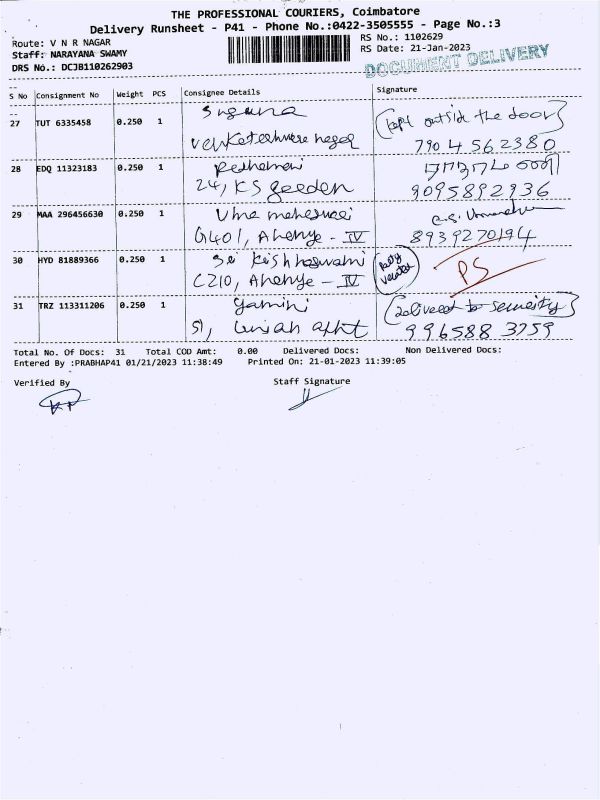 THE PROFESSIONAL COURIERS, Coimbatore
Delivery Runsheet - P41 - Phone No.:0422-3505555 - Page No.:3
Route: V N R NAGAR
RS No.: 1102629
Staff: NARAYANA SWAMY
RS Date: 21-Jan-2023
DRS No.: DCJB110262903
DOCUMENT DELIVERY
S No Consignment No Weight PCS Consignee Details Signature
27 TUT 6335458 0.250 1 Suguna (kept outside the door)
7904562380
28 EDQ 11323183 0.250 1
24, KS
9095892936
29 MAA 296456630 0.250 1 Uma
G401, - IV 8939270194
30 HYD 81889366 0.250 1 Sri
C210, - IV PS
31 TRZ 113311206 0.250 1 Yamini (Delivered to security)
51, 996588 3759
Total No. Of Docs: 31 Total COD Amt: 0.00 Delivered Docs: Non Delivered Docs:
Entered By :PRABHAP41 01/21/2023 11:38:49 Printed On: 21-01-2023 11:39:05
Verified By Staff Signature